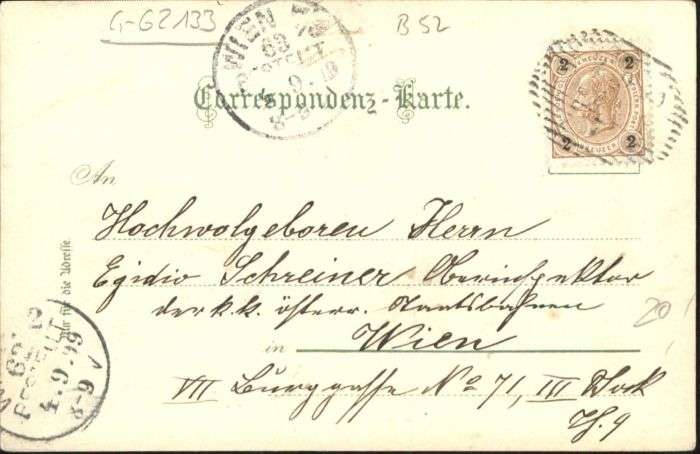 G-GZ133
B 52
WIEN
63
4.9.
8-9
2 KREUZER 2
2 2
Correspondenz-Karte.
An
Hochwolgeboren Herrn
Egidio Schreiner Oberinspektor
der k.k. österr. Staatsbahnen
in Wien
VII Burggasse No 71, III Stock
Th. 9
Nur für die Adresse.
BESTELLT
4.9.99
8-9 V
20